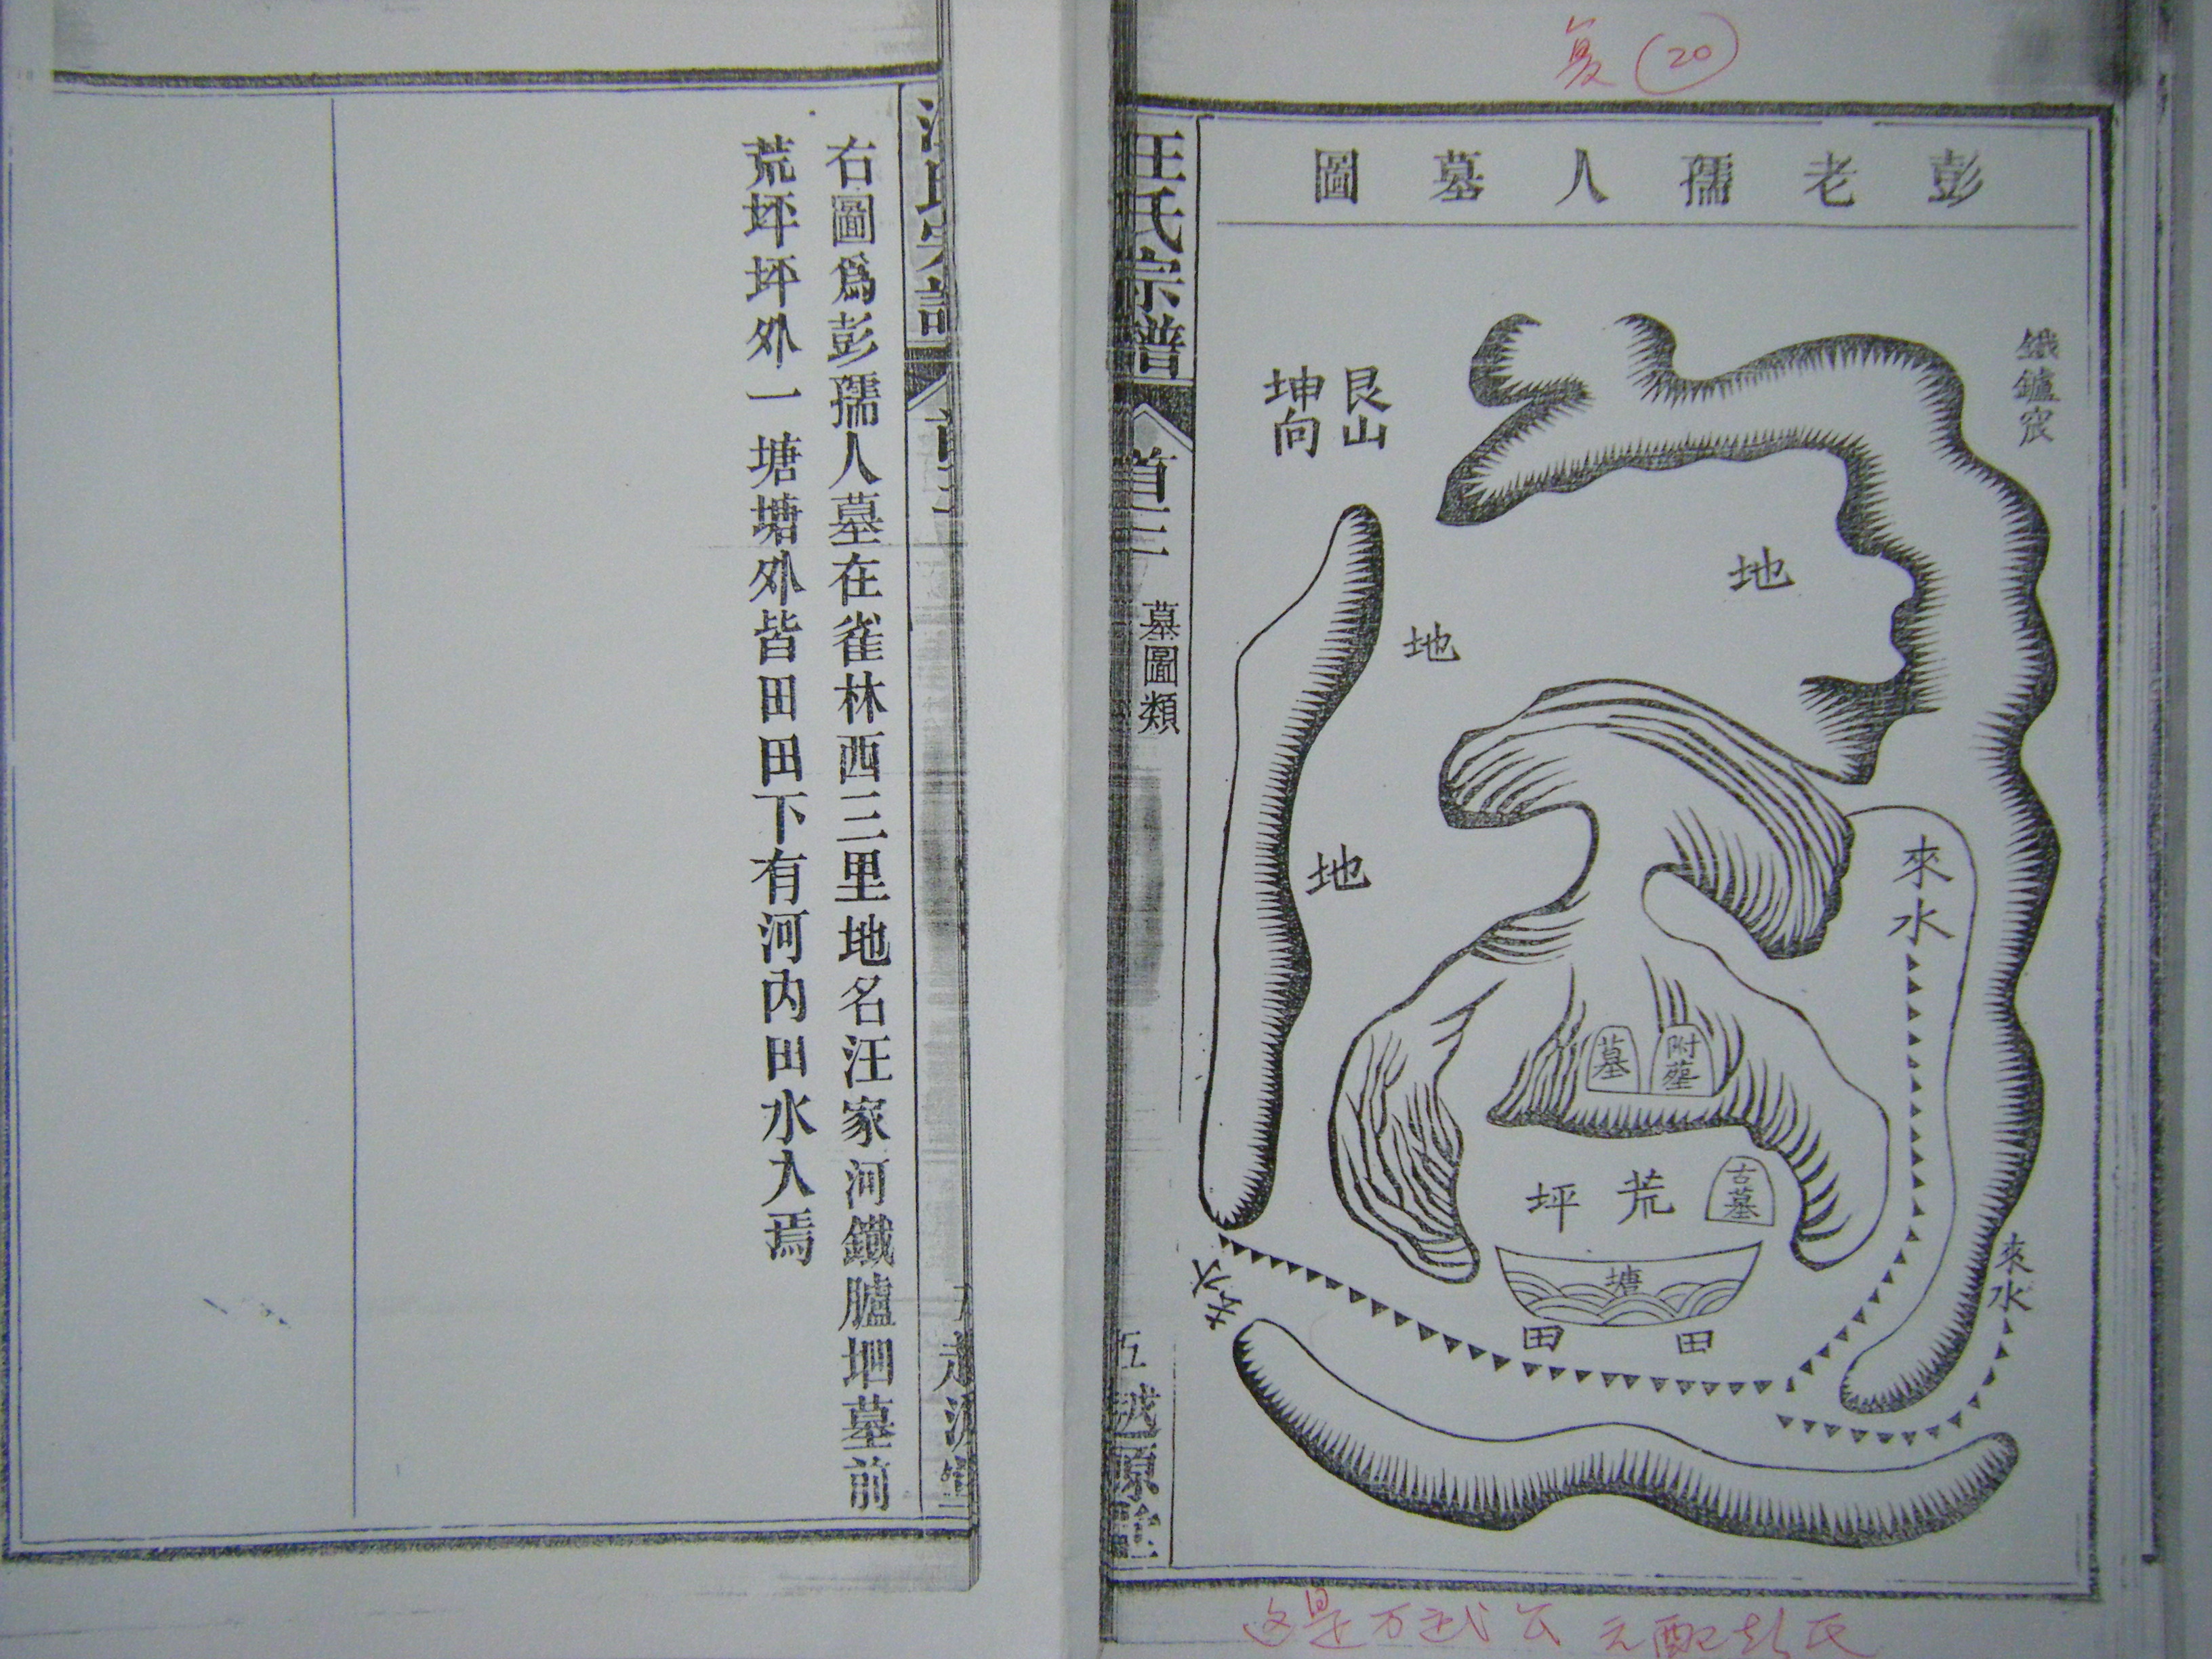 复 20
彭老孺人墓圖
鐵鑪宸
艮山
坤向
地
地
地
來水
墓
附塋
古墓
荒坪
塘
田
田
來水
去水
汪氏宗譜
首二
墓圖類
五
越原堂
这是万 公元配彭氏
右圖爲彭孺人墓在雀林西三里地名汪家河鐵臚垇墓前
荒坪坪外一塘塘外皆田田下有河內田水入焉